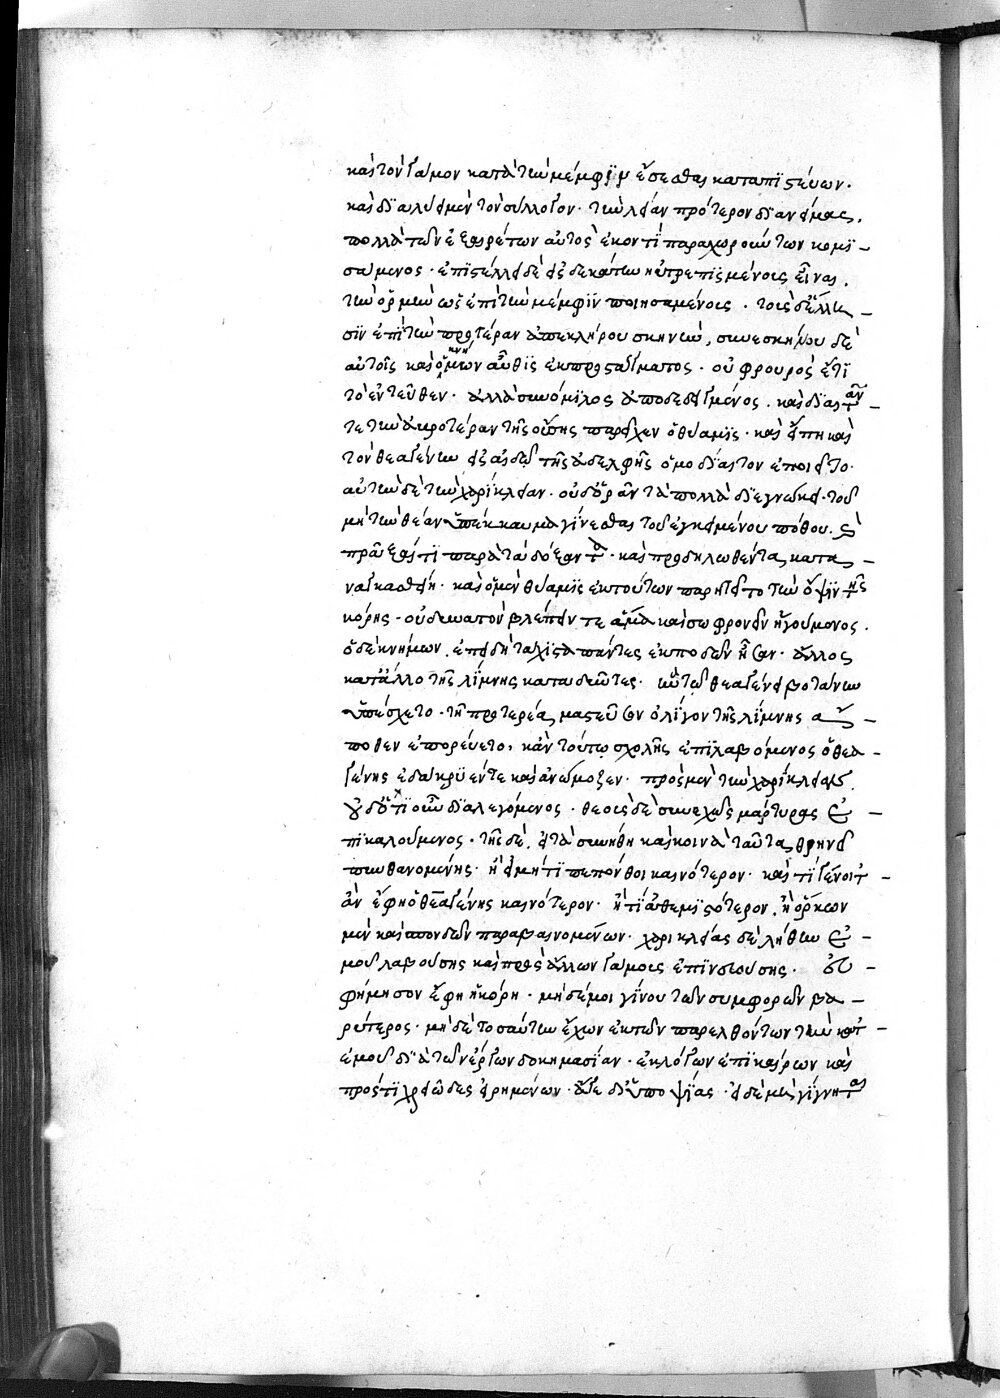 καὶ τὸν γάμον κατὰ τὴν μέμφϊν ἔσεσθαι καταπιστεύων.
καὶ διαλύει μὲν τὸν σύλλογον· τὴν λείαν πρότερον διανείμας.
πολλὰ τῶν ἐξαιρέτων αὐτὸς ἑκοντὶ παραχωρούντων κομι-
σάμενος· ἐπιστέλλει δὲ εἰς δεκάτην ηὐτρεπισμένοις εἶναι.
τὴν ὁρμὴν ὡς ἐπὶ τὴν μέμφϊν ποιησαμένοις. τοῖς δ' ἕλλη-
σιν ἐπὶ τὴν προτέραν ἀπεκλήρου σκηνήν, συνεσκήνου δὲ
αὐτοῖς καὶ ὁ κνήμων αὖθις ἐκ προστάγματος. οὐ φρουρὸς ἔτι
τὸ ἐντεῦθεν. ἀλλὰ συνόμιλος ἀποδεδειγμένος. καὶ δίαιταν
τε τὴν ἁβροτέραν τῆς οὔσης παρεῖχεν ὁ θύαμις. καὶ ἔπη καὶ
τὸν θεαγένην εἰς αἰδῶ τῆς ἀδελφῆς ὁμοδίαιτον ἐποιεῖτο.
αὐτὴν δὲ τὴν χαρίκλειαν. οὐδ' ὁρᾶν τὰ πολλὰ διεγνώκει. τοῦ
μὴ τὴν θέαν ὑπέκκαυμα γίνεσθαι τοῦ ἐγκειμένου πόθου. καὶ
πρᾶξαί τι παρὰ τὰ δόξαντα. καὶ προδηλωθέντα, κατα-
ναγκασθείη. καὶ ὁ μὲν θύαμις ἐκ τούτων παρῃτεῖτο τὴν ὄψιν τῆς
κόρης. οὐ δυνατὸν βλέπειν τε ἅμα καὶ σωφρονεῖν ἡγούμενος.
ὁ δὲ κνήμων. ἐπειδὴ τάχιστα πάντες ἐκποδὼν ἦσαν. ἄλλος
κατ' ἄλλο τῆς λίμνης καταδύντες. ἣν τῷ θεαγένει βοτάνην
ὑπέσχετο. τῇ προτεραίᾳ μαστεύσων ὀλίγον τῆς λίμνης ἄ-
ποθεν ἐπορεύετο. κἀν τούτῳ σχολῆς ἐπιλαβόμενος ὁ θεα-
γένης ἐδάκρυέν τε καὶ ἀνῴμωξεν. πρὸς μὲν τὴν χαρίκλειαν.
οὐδ' ὁτιοῦν διαλεγόμενος. θεοὺς δὲ συνεχῶς μάρτυρας ἐ-
πικαλούμενος. τῆς δὲ, εἰ τὰ συνήθη καὶ κοινὰ ταῦτα, θρηνεῖ
πυνθανομένης. ἢ εἰ μή τι πεπόνθοι καινότερον. καὶ τί γένοιτ'
ἂν ἔφη ὁ θεαγένης καινότερον. ἢ τί ἀθεμιτότερον. ἢ ὅρκων
μὲν καὶ σπονδῶν παραβαινομένων. χαρικλείας δὲ λήθην ἐ-
μοῦ λαβούσης καὶ πρὸς ἄλλων γάμους ἐπινευούσης. εὐ-
φήμησον ἔφη ἡ κόρη. μηδέ μοι γίνου τῶν συμφορῶν βα-
ρύτερος. μηδὲ τοσαύτην ἔχων ἐκ τῶν παρελθόντων τὴν κατ'
ἐμοῦ διὰ τῶν ἔργων δοκιμασίαν. ἐκ λόγων ἐπικαίρων καὶ
πρός τι χρειῶδες εἰρημένων. ἄγε δι' ὑποψίας. εἰ δὲ μὴ γίγνηται